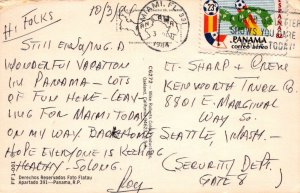 10/3/84
HI FOLKS
STILL ENJOYING A
WONDERFUL VACATION
IN PANAMA - LOTS
OF FUN HERE - LEAV-
ING FOR MIAMI TODAY
ON MY WAY BACK HOME
HOPE EVERYONE IS KEEPING
HEALTHY - SO LONG.
PANAMA
correo aéreo
23
1984
SHOWS YOU CARE
TODAY!
ET. SHARP & CREW
KENWORTH TRUCK CO
8801 E. MARGINAL
WAY SO.
SEATTLE, WASH. -
(SECURITY DEPT.
GATE 8)
Derechos Reservados Foto Flatau
Apartado 391—Panama, R.P.